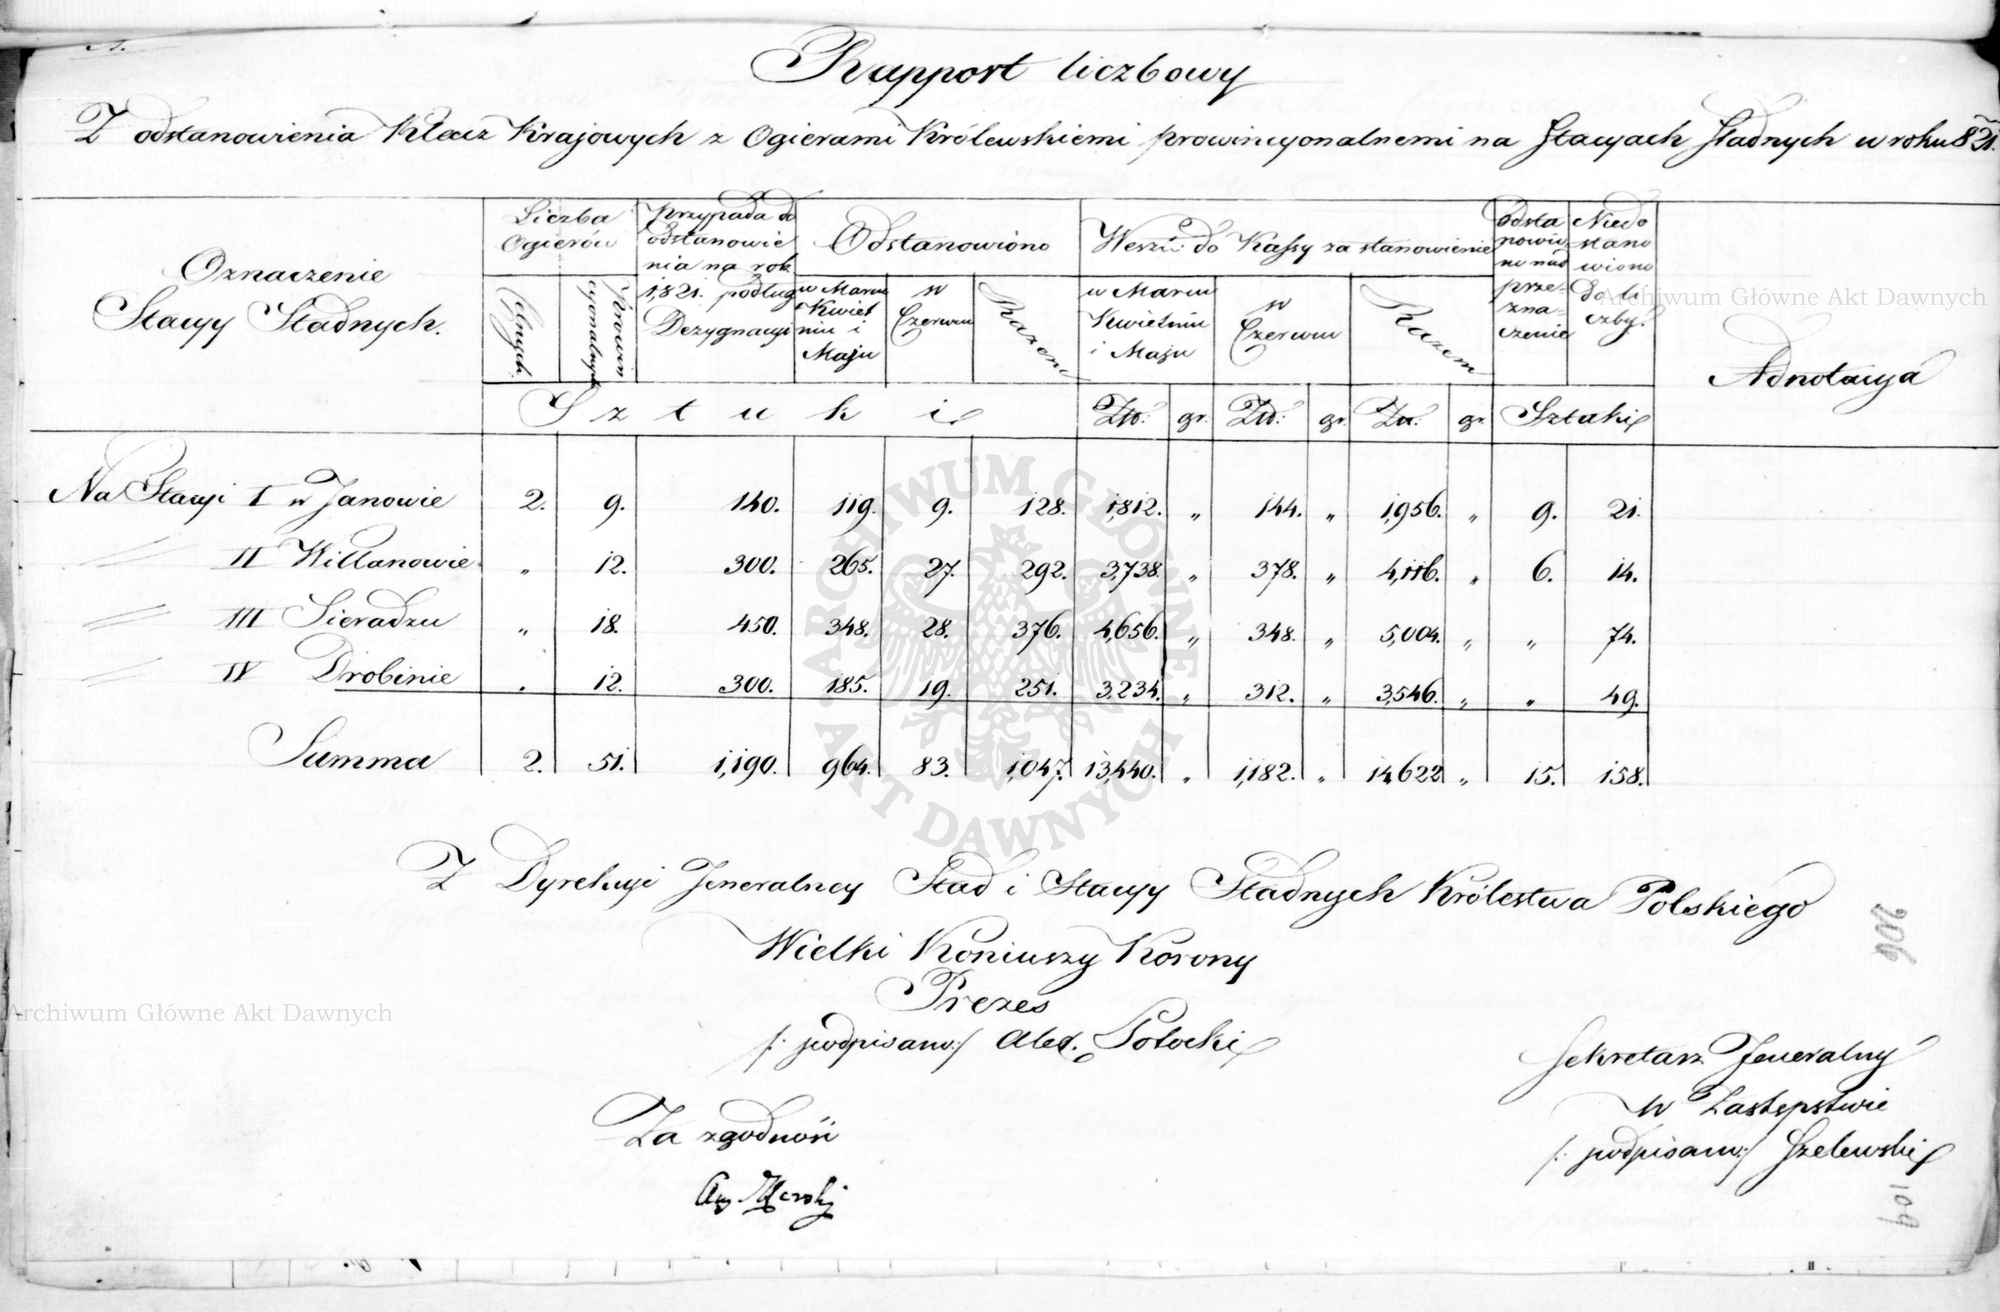 Rapport liczbowy
Z odstanowienia Klacz Krajowych z Ogierami Królewskiemi prowincyonalnemi na Stacyach Stadnych w roku 821.
Oznaczenie Stacyy Stadnych.
Liczba Ogierów
Przypada do odstanowienia na rok 1,821. podług Dezygnacyi
Odstanowiono
do Kassy za stanowienie
odstanowiono nad przeznaczenie
Niedostanowiono do liczby.
Adnotacya
Prowincyonalnych
w Marcu Kwietniu i Maju
w Czerwcu
Razem
w Marcu Kwietniu i Maju
w Czerwcu
Razem
Sztuki
Zło: gr. Zło: gr. Zło: gr.
Sztuki
Na Stacyi I w Janowie 2. 9. 140. 119. 9. 128. 1,812. „ 144. „ 1,956. „ 9. 21.
„ II Willanowie „ 12. 300. 265. 27. 292. 3,738. „ 378. „ 4,116. „ 6. 14.
„ III Sieradzu „ 18. 450. 348. 28. 376. 4,656. „ 348. „ 5,004. „ „ 74.
„ IV Drobinie „ 12. 300. 185. 19. 251. 3,234. „ 312. „ 3,546. „ „ 49.
Summa 2. 51. 1,190. 964. 83. 1,047. 13,440. „ 1,182. „ 14,622 „ 15. 158.
Z Dyrekcyi Jeneralney Stad i Stacyy Stadnych Królestwa Polskiego
Wielki Koniuszy Korony
Prezes
/: podpisano:/ Alex. Potocki
Sekretarz Jeneralny
w Zastępstwie
/: podpisano:/ Szelewski
Za zgodność
206
109
Archiwum Główne Akt Dawnych
Archiwum Główne Akt Dawnych
ARCHIWUM GŁÓWNE AKT DAWNYCH